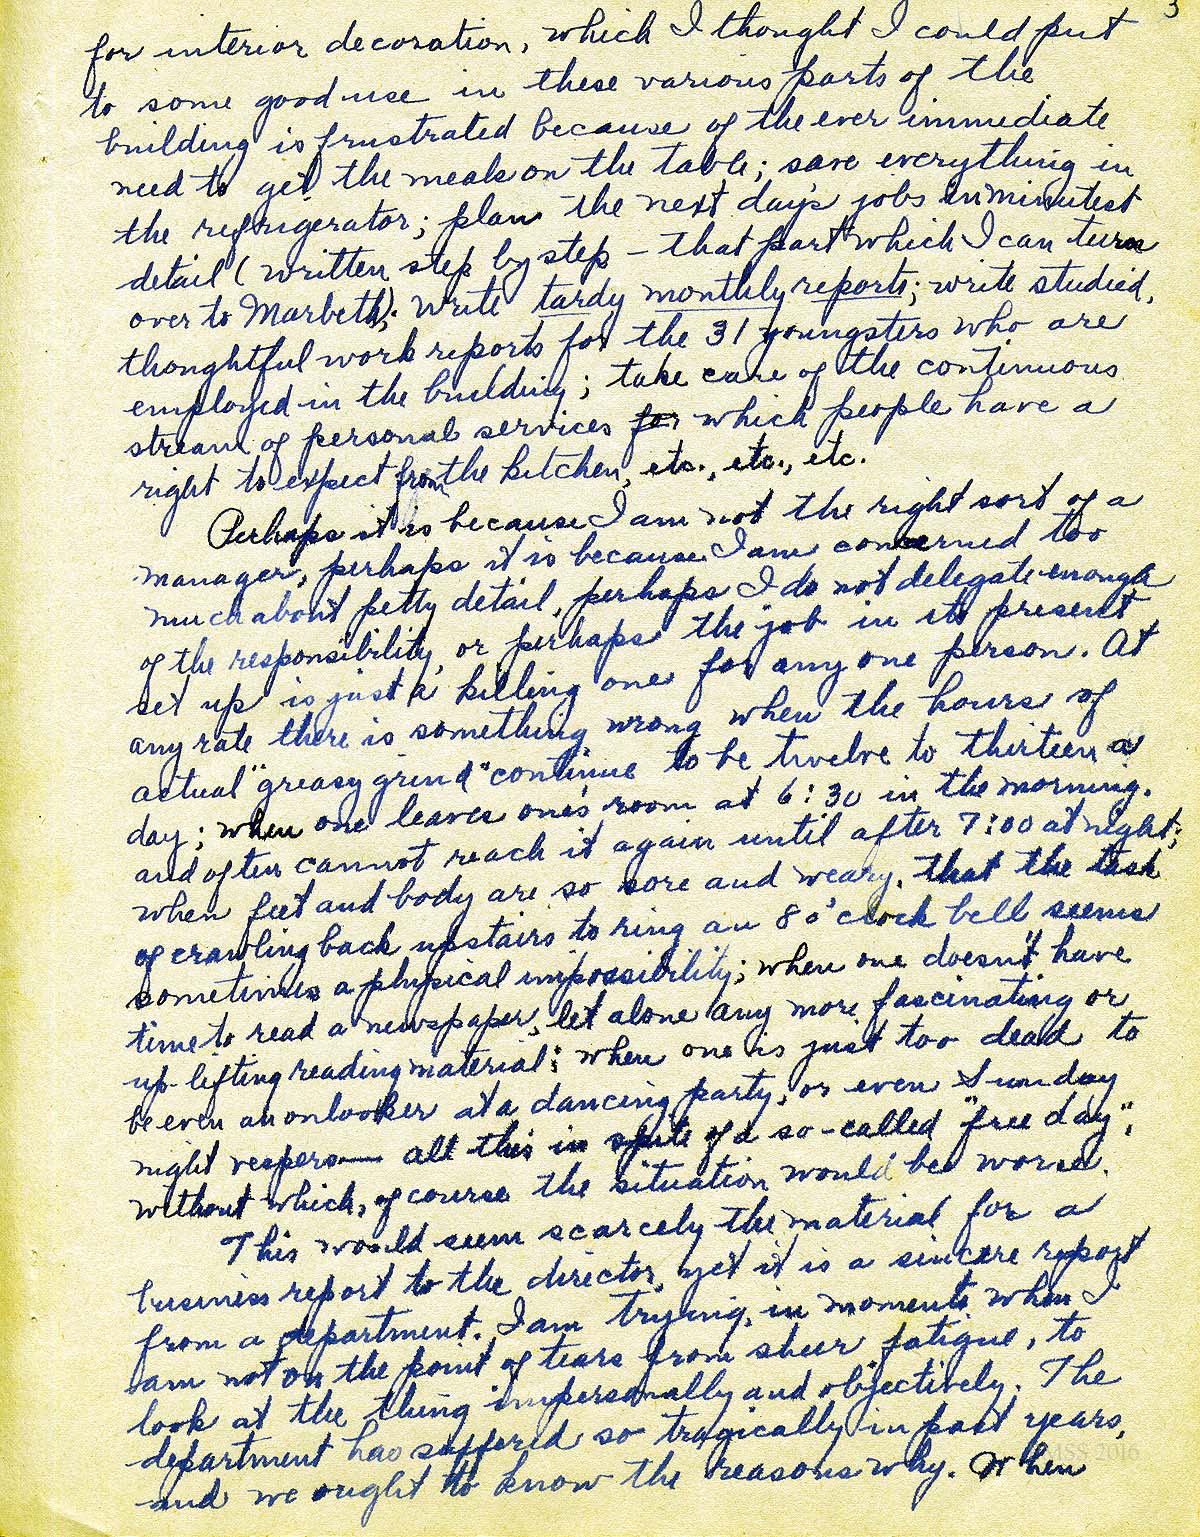 3
for interior decoration, which I thought I could put
to some good use in these various parts of the
building is frustrated because of the ever immediate
need to get the meals on the table; save everything in
the refrigerator; plan the next day's jobs in minutest
detail (written step by step – that part which I can turn
over to Marbeth); write tardy monthly reports; write studied,
thoughtful work reports for the 31 youngsters who are
employed in the building; take care of the continuous
stream of personal services for which people have a
right to expect from the kitchen, etc., etc., etc.
Perhaps it is because I am not the right sort of a
manager, perhaps it is because I am concerned too
much about petty detail, perhaps I do not delegate enough
of the responsibility, or perhaps the job in its present
set up is just a killing one for any one person. At
any rate there is something wrong when the hours of
actual "greasy grind" continue to be twelve to thirteen a
day; when one leaves one's room at 6:30 in the morning.
and often cannot reach it again until after 7:00 at night;
when feet and body are so sore and weary, that the task
of crawling back upstairs to ring an 8 o'clock bell seems
sometimes a physical impossibility; when one doesn't have
time to read a newspaper, let alone any more fascinating or
up-lifting reading material; when one is just too dead to
be even an onlooker at a dancing party, or even Sunday
night vespers — all this in spite of a so-called "free day",
without which, of course the situation would be worse.
This would seem scarcely the material for a
business report to the director, yet it is a sincere report
from a department. I am trying, in moments when I
am not on the point of tears from sheer fatigue, to
look at the thing impersonally and objectively. The
department has suffered so tragically in past years,
and we ought to know the reasons why. When
MSS 2016